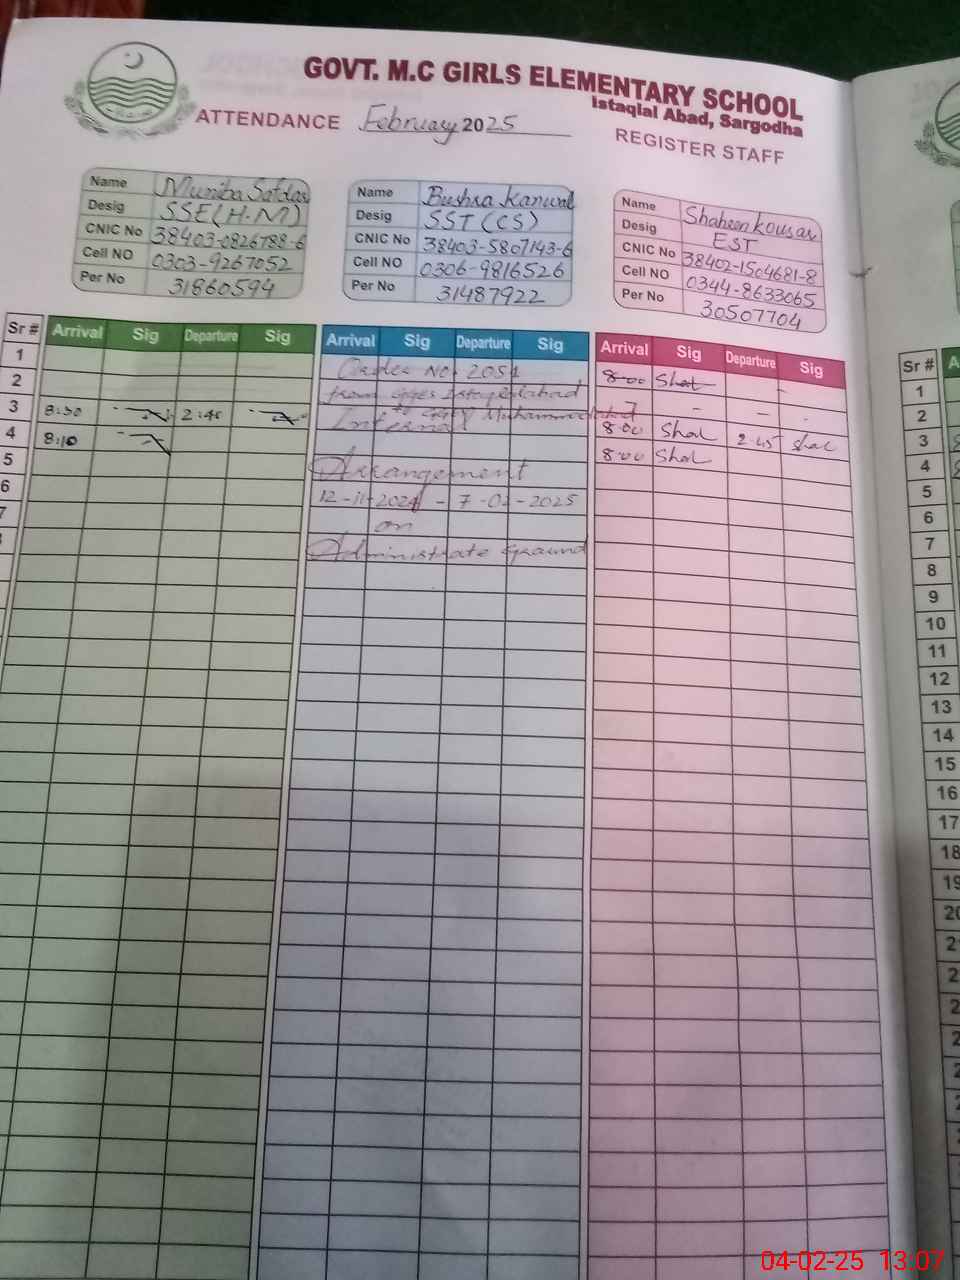 GOVT. M.C GIRLS ELEMENTARY SCHOOL
Istaqlal Abad, Sargodha
ATTENDANCE February 2025
REGISTER STAFF
Name Muniba Safdar
Desig SSE(H.M)
CNIC No 38403-0826788-6
Cell NO 0303-9267052
Per No 31860594
Name Bushra Kanwal
Desig SST (CS)
CNIC No 38403-5807143-6
Cell NO 0306-9816526
Per No 31487922
Name Shaheen Kousar
Desig EST
CNIC No 38402-1504681-8
Cell NO 0344-8633065
Per No 30507704
Sr # Arrival Sig Departure Sig Arrival Sig Departure Sig Arrival Sig Departure Sig Sr # A
1 Order No. 2051 8:00 1
2 from 2
3 8:30 2:40 Internal 8:00 2:45 3
4 8:10 8:00 4
5 Arrangement 5
6 12-11-2024 - 7-02-2025 6
7 on 7
Administrate Ground 8
9
10
11
12
13
14
15
16
17
18
19
20
04-02-25 13:07